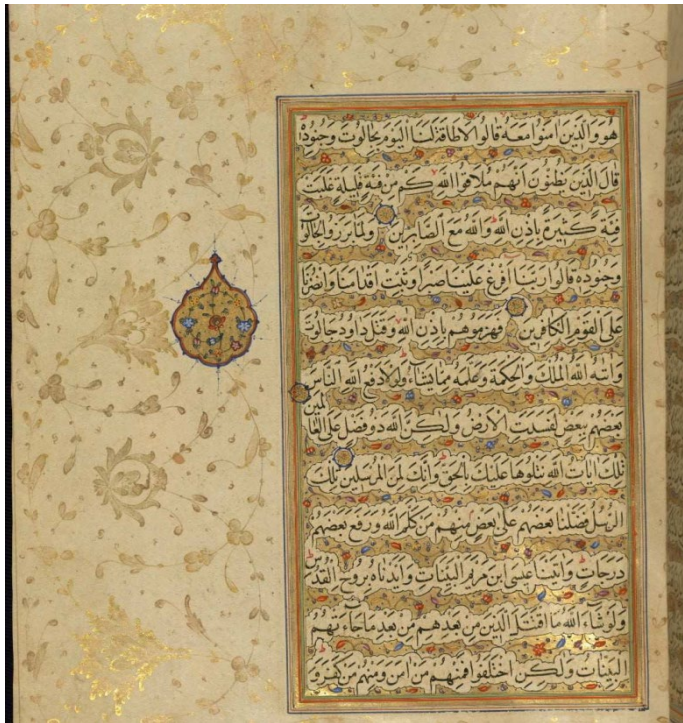 هو والذين امنوا معه قالوا لا طاقة لنا اليوم بجالوت وجنوده
قال الذين يظنون انهم ملاقوا الله كم من فئة قليلة غلبت
فئة كثيرة باذن الله والله مع الصابرين ولما برزوا لجالوت
وجنوده قالوا ربنا افرغ علينا صبرا وثبت اقدامنا وانصرنا
على القوم الكافرين فهزموهم باذن الله وقتل داود جالوت
واته الله الملك والحكمة وعلمه مما يشاء ولولا دفع الله الناس
بعضهم ببعض لفسدت الارض ولكن الله ذو فضل على العالمين
تلك ايات الله نتلوها عليك بالحق وانك لمن المرسلين تلك
الرسل فضلنا بعضهم على بعض منهم من كلم الله ورفع بعضهم
درجات واتينا عيسى ابن مريم البينات وايدناه بروح القدس
ولو شاء الله ما اقتتل الذين من بعدهم من بعد ما جاءتهم
البينات ولكن اختلفوا فمنهم من امن ومنهم من كفر و